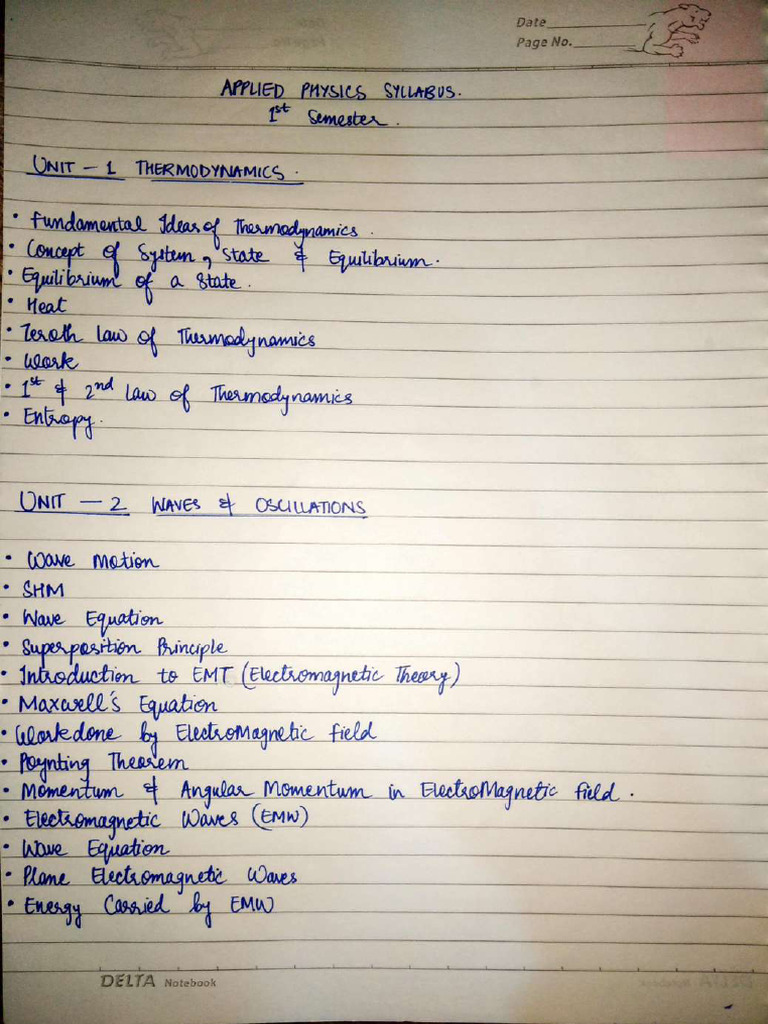 Date
Page No.
APPLIED PHYSICS SYLLABUS.
1st Semester.
UNIT - 1 THERMODYNAMICS.
• Fundamental Ideas of Thermodynamics.
• Concept of System, State & Equilibrium.
• Equilibrium of a State.
• Heat
• Zeroth Law of Thermodynamics
• Work
• 1st & 2nd Law of Thermodynamics
• Entropy.
UNIT - 2 WAVES & OSCILLATIONS
• Wave Motion
• SHM
• Wave Equation
• Superposition Principle
• Introduction to EMT (Electromagnetic Theory)
• Maxwell's Equation
• Workdone by ElectroMagnetic field
• Poynting Theorem
• Momentum & Angular Momentum in ElectroMagnetic field.
• Electromagnetic Waves (EMW)
• Wave Equation
• Plane Electromagnetic Waves
• Energy Carried by EMW
DELTA Notebook